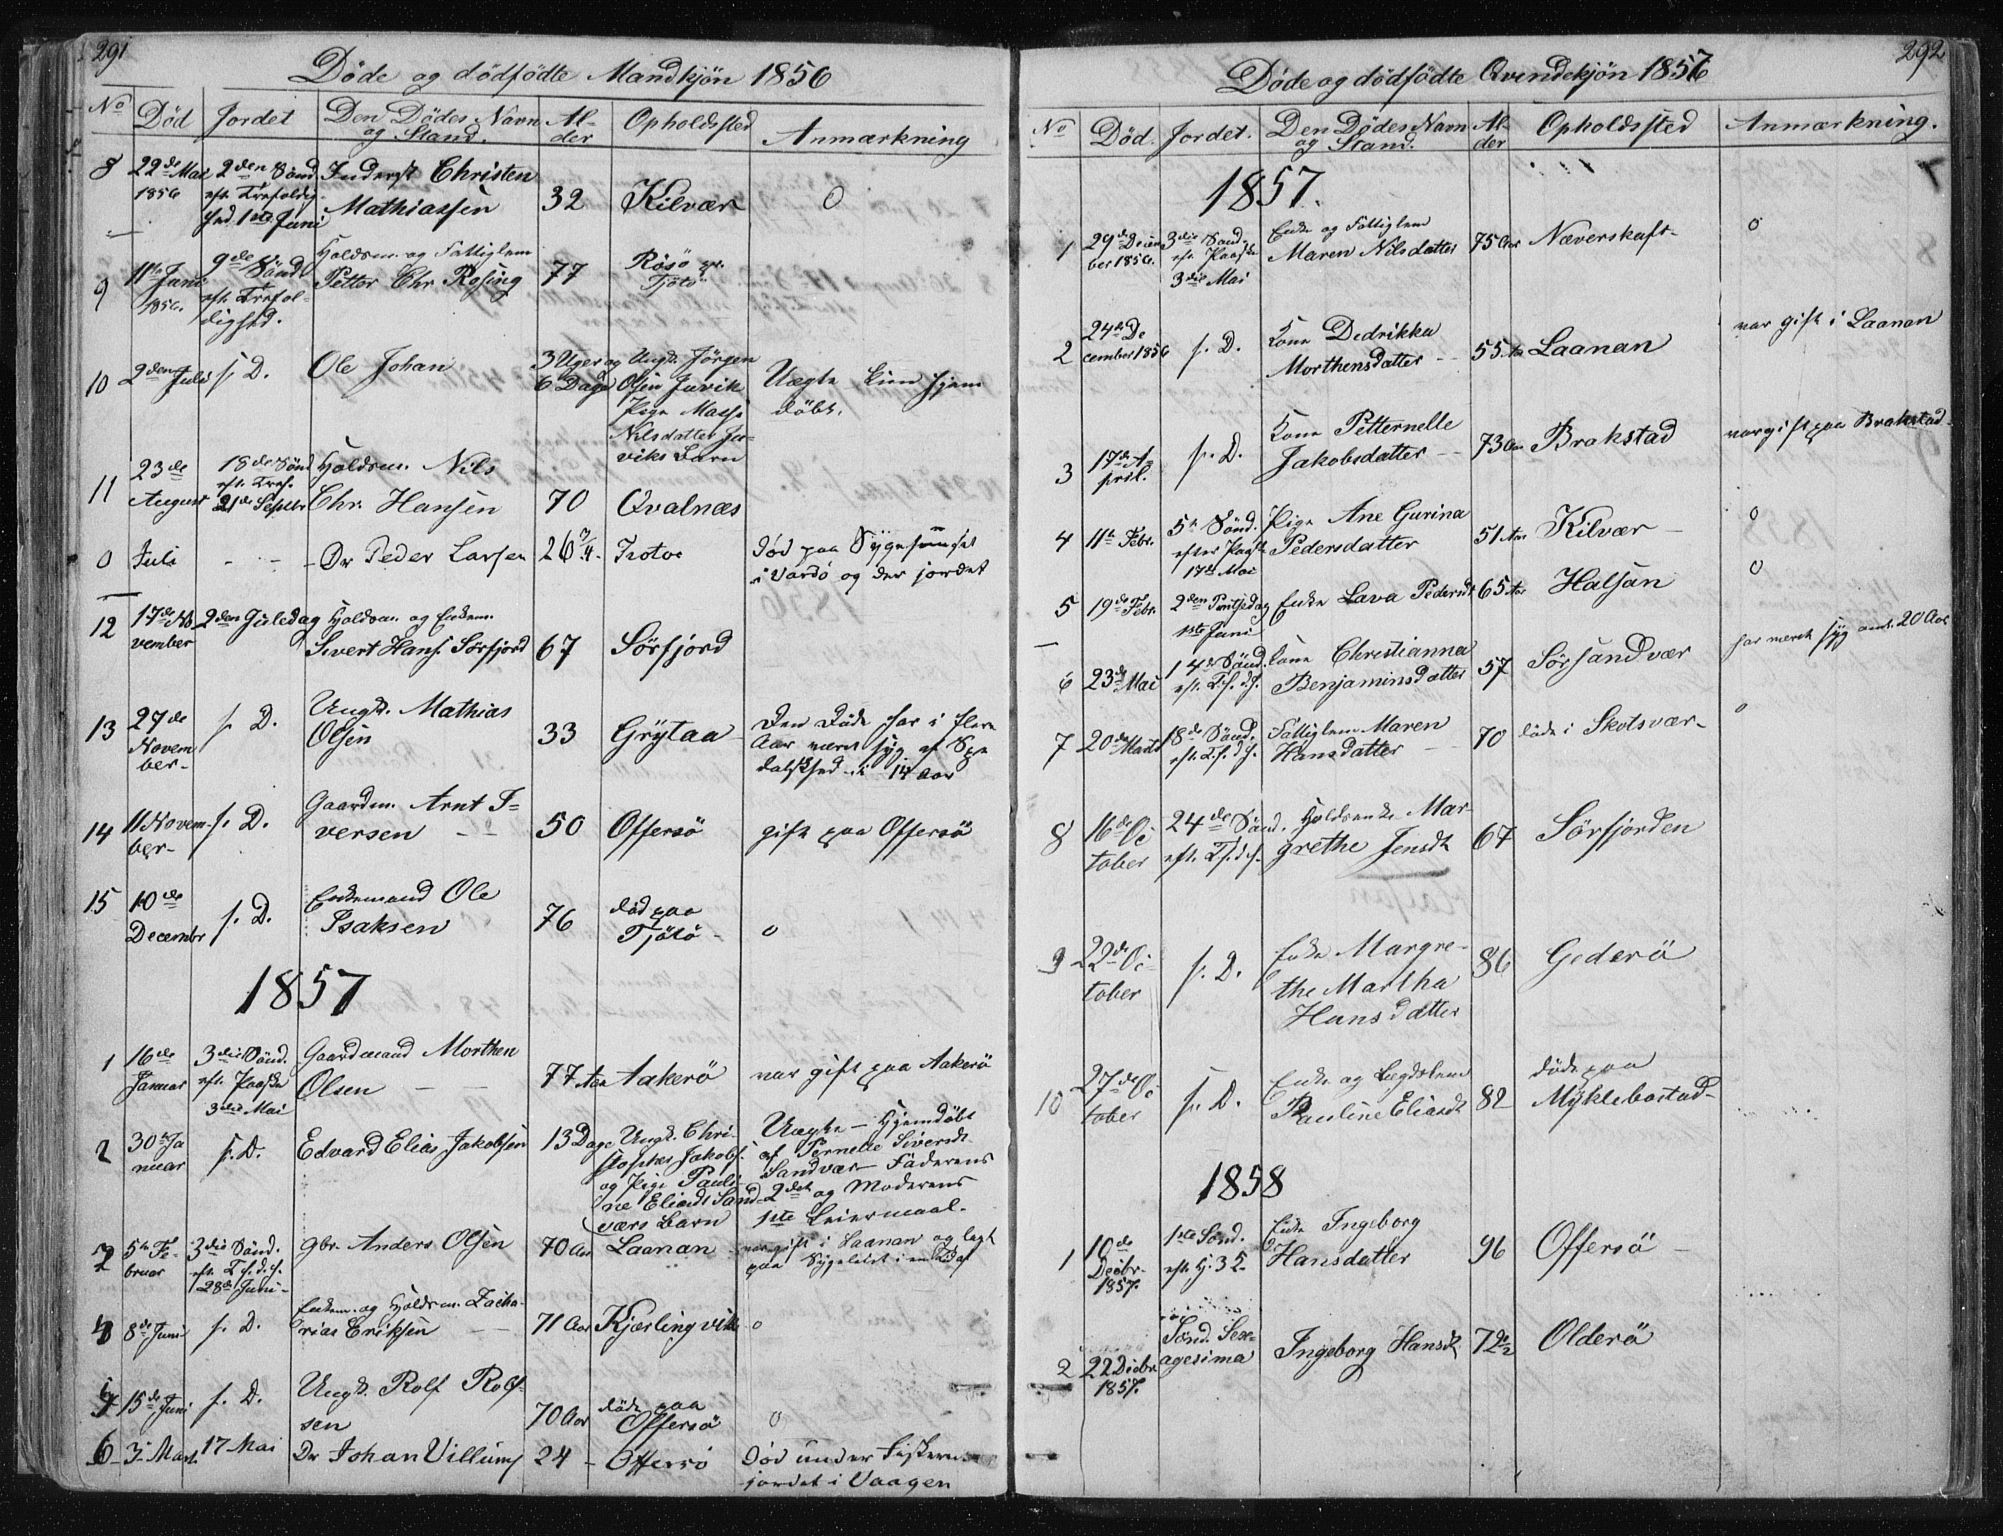 291
Døde og dödfödte Mandkjön 1856
No Död Jordet Den Dödes Navn og Stand. Alder Opholdssted Anmærkning
8 22de Mai 1856 2den Sönd. eft. Trefoldighed 1ste Juni Inderst Christen Mathiassen 32 Kilvær 0
9 11te Juni 1856. 9de Sönd. eft. Trefoldighed. Holdsm. og Fattiglem Petter Chr Rosing 77 Røsö pr. Tjötö
10 2den Juli s. D. Ole Johan 3 Uger og 6 Dage Ungk. Jörgen Olsen Jervik Pige Masse Nilsdatter Jerviks Barn Uægte hjemdöbt.
11 23de August 18de Sönd eft. Tref. 21de Septbr Holdsm. Nils Chr. Hansen 70 Qvalnæs
0 Juli - - Dr Peder Larsen 26 3/4. Trotoe död paa Sygehuuset i Vardö og der jordet
12 17de November 2den Juledag Holdsm. og Enkem. Sivert Hans. Sörfjord 67 Sörfjord
13 27de November- s. D. Ungk. Mathias Olsen 33 Grÿtaa Den Döde har i flere Aar været syg af Spedalskhed i 14 Aar
14 11 November- s. D. Gaardm. Arnt Iversen 50 Offersö gift paa Offersö
15 10de Decembr s. D. Enkemand Ole Isaksen 76 död paa Tjötö- 0
1857
1 16de Januar 3die Sönd. eft. Paaske 3die Mai Gaardmand Morthen Olsen 77 Aar Aakerö var gift paa Aakerö
2 30te Januar s. D. Edvard Elias Jakobsen 13 Dage Ungk. Christopher Jakobs. og Pige Pauline Eliasdt Sandværs Barn Uægte - Hjemdöbt af Pernelle Siversdt. Sandvær - Faderens 2det og Moderens 1ste Leiermaal.
5te Februar 3die Sönd. eft. T.f.d.h. 28de Juni- gbr. Anders Olsen 70 Aar Laanan var gift i Laanan og lagt paa Sygeleiet
4 8de Juni s. D. Enkem. og Holdsm. Zacharias Eriksen 71 Aar Kjærlingvik 0
15de Juni s. D. Ungk. Rolf Rolfsen 70 Aar döde paa Offersö 0
6 3- Mart. 17 Mai Dr Johan Villums 24 - Offersö Död under Fiskeri jordet i Vaagen
292
Döde og dödfödte Qvindekjön 1856
No Död. Jordet. Den Dödes Navn og Stand. Alder Opholdssted Anmærkning.
1857.
1 29de December 1856. 3die Sönd. eft. Paaske 3die Mai Enke og Fattiglem Maren Nilsdatter 75 Aar Næverskaft- 0
2 24de December 1856 s. D. Kone Dedrikka Morthensdatter - 55 Aar Laanan var gift i Laanan
3 17de April. s. D. Kone Petternelle Jakobsdatter - 73 Aar Brakstad var gift paa Brakstad-
4 11te Febr. 5te Sönd. efter Paaske 17de Mai Pige Ane Gurina Pedersdatter 51 Aar Kilvær - 0
5 19de Febr. 2den Pintsedag 1ste Juni Enke Lava Pedersdt 65 Aar Halsan 0
6 23de Mai 14de Sönd. eft. T.f.d.h. Kone Christianna Benjaminsdatter 57 Sörsandvær har været syg omt. 20 Aar
7 20de Marts 18de Sönd. eft. T.f.d.h. Fattiglem Maren Hansdatter - 70 döde i Skotsvær- 0
8 16de October 24de Sönd. eft. T.f.d.h. Holdsenke Margrethe Jensdt 67 Sörfjorden
9 22de October s. D. Enke Margrethe Martha Hansdatter 86 Gederö
10 27de October s. D. Enke og Lægdslem Pauline Eliasdt 82 döde paa Mÿklebostad-
1858
1 10de Decbr- 1857. 1ste Sönd. eft. Hj. 3 K. Enke Ingeborg Hansdatter 96 Offersö -
2 22 Decbr 1857. Sönd. Sexagesima Ingeborg Hansdt 72 Olderö